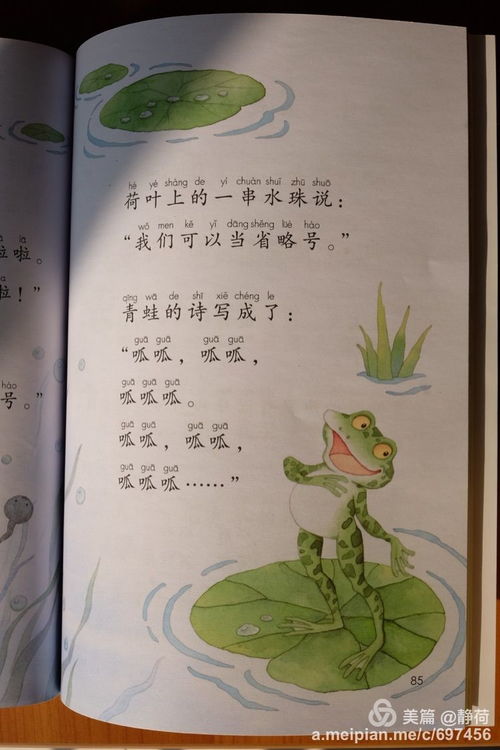 啦。
啦！”
hào
号。”
hé yè shàng de yí chuàn shuǐ zhū shuō
荷叶上的一串水珠说：
wǒ men kě yǐ dāng shěng lüè hào
“我们可以当省略号。”
qīng wā de shī xiě chéng le
青蛙的诗写成了：
guā guā guā guā
“呱呱，呱呱，
guā guā guā
呱呱呱。
guā guā guā guā
呱呱，呱呱，
guā guā guā
呱呱呱……”
85
美篇 @静荷
a.meipian.me/c/697456